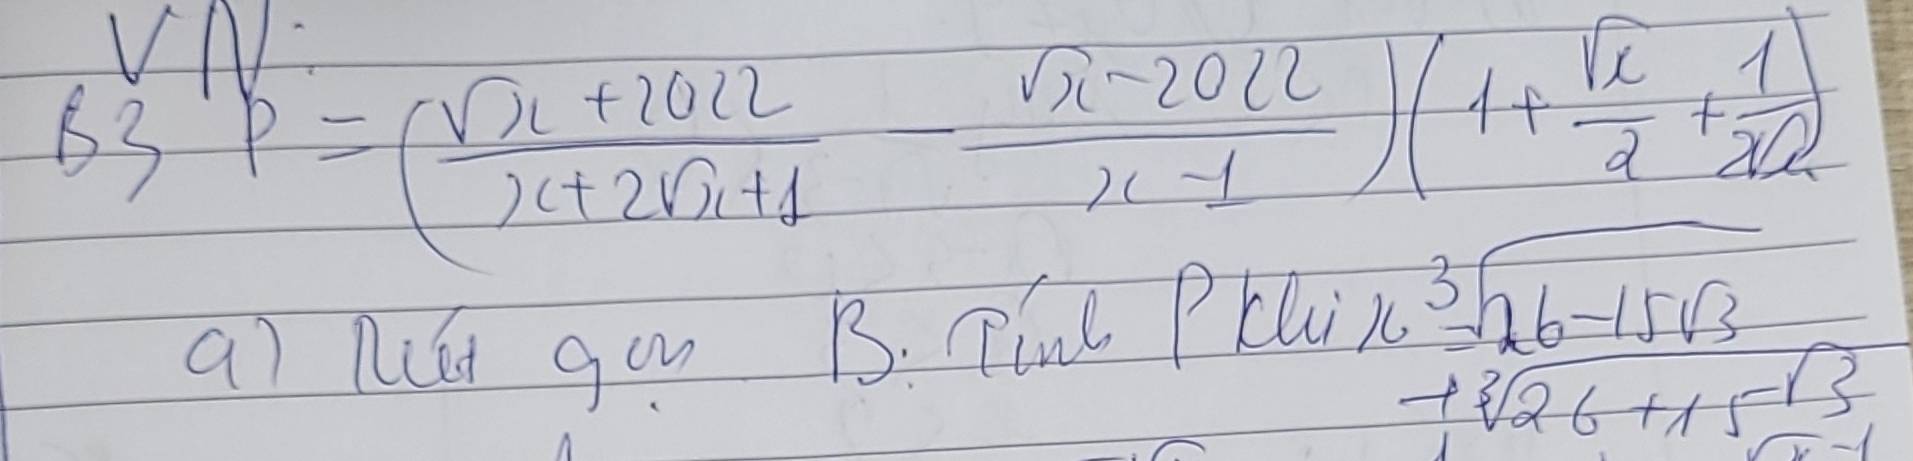 VN.
B3 P = ((√x + 2022)/(x + 2√x + 1) − (√x − 2022)/(x − 1))(1 + √x/2 + 1/(2√x))
a) Rút gọn B. Tính P khi x = ∛(26 − 15√3)
+ ∛(26 + 15√3)